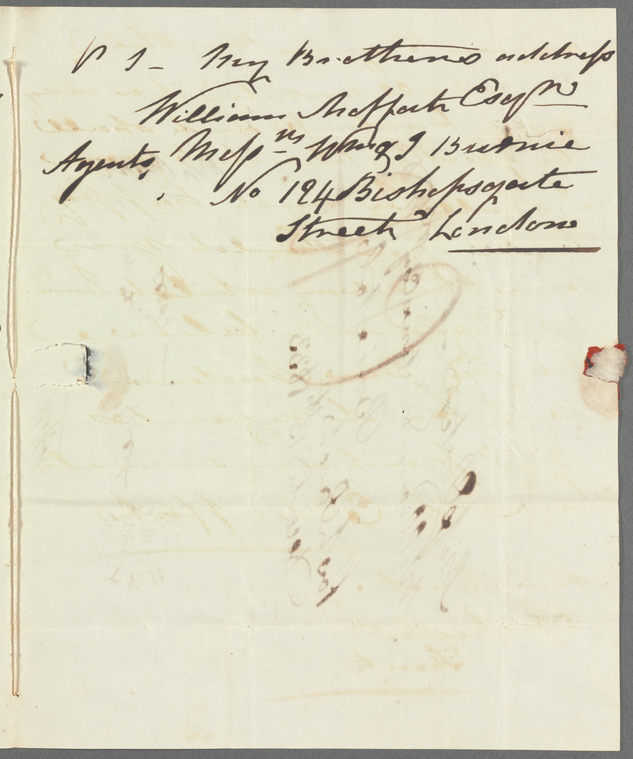 P S - My Brothers address
William Moffath Esqre
Agents, Messrs Wm & J Burnie
No 124 Bishopsgate
Street London